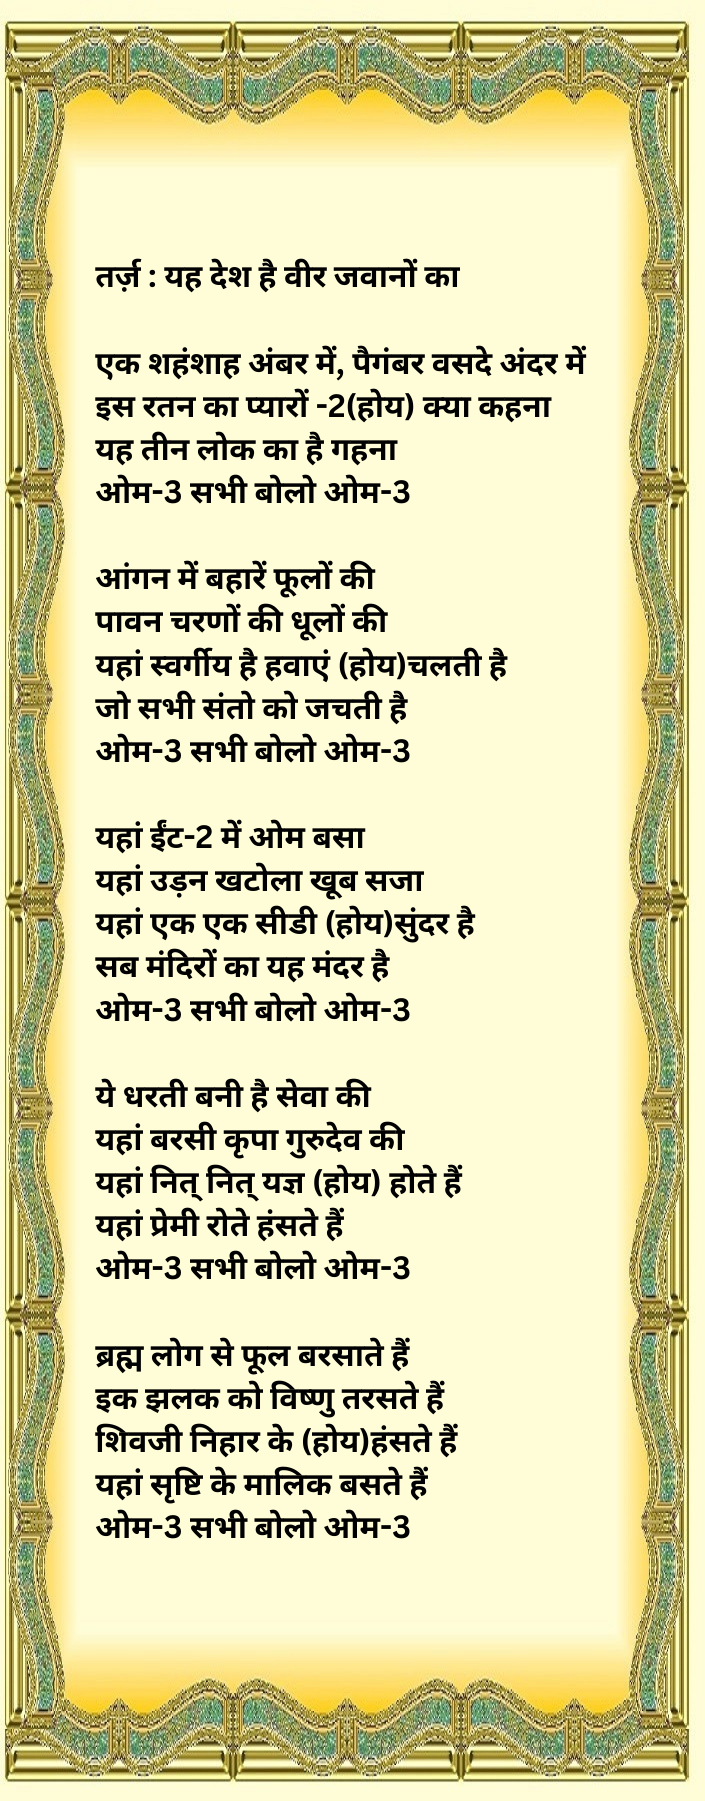 तर्ज़ : यह देश है वीर जवानों का
एक शहंशाह अंबर में, पैगंबर वसदे अंदर में
इस रतन का प्यारों -2(होय) क्या कहना
यह तीन लोक का है गहना
ओम-3 सभी बोलो ओम-3
आंगन में बहारें फूलों की
पावन चरणों की धूलों की
यहां स्वर्गीय है हवाएं (होय)चलती है
जो सभी संतो को जचती है
ओम-3 सभी बोलो ओम-3
यहां ईंट-2 में ओम बसा
यहां उड़न खटोला खूब सजा
यहां एक एक सीडी (होय)सुंदर है
सब मंदिरों का यह मंदर है
ओम-3 सभी बोलो ओम-3
ये धरती बनी है सेवा की
यहां बरसी कृपा गुरुदेव की
यहां नित् नित् यज्ञ (होय) होते हैं
यहां प्रेमी रोते हंसते हैं
ओम-3 सभी बोलो ओम-3
ब्रह्म लोग से फूल बरसाते हैं
इक झलक को विष्णु तरसते हैं
शिवजी निहार के (होय)हंसते हैं
यहां सृष्टि के मालिक बसते हैं
ओम-3 सभी बोलो ओम-3